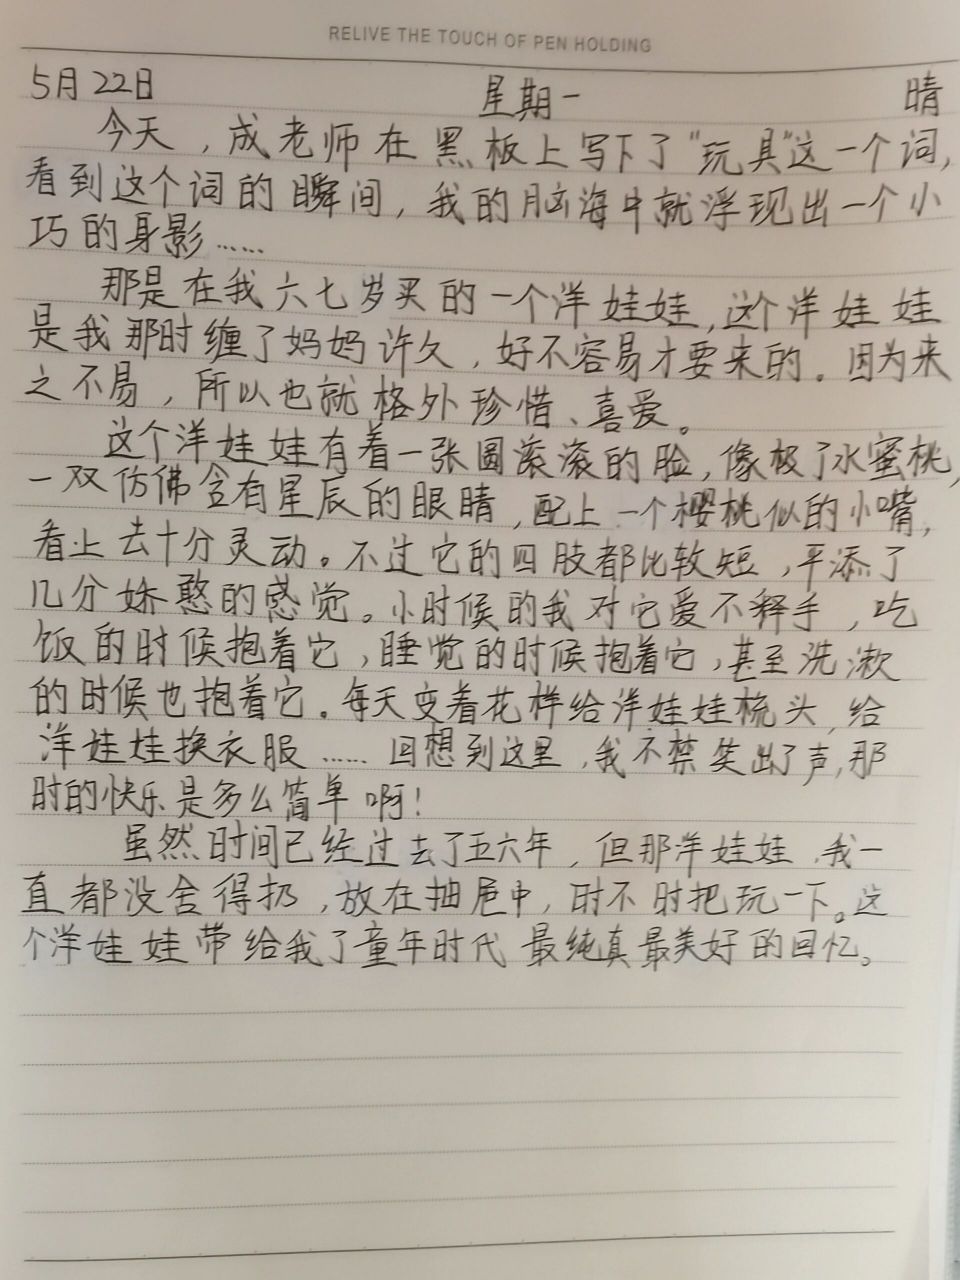 RELIVE THE TOUCH OF PEN HOLDING
5月22日 星期一 晴
今天，成老师在黑板上写下了“玩具”这一个词，
看到这个词的瞬间，我的脑海中就浮现出一个小
巧的身影……
那是在我六七岁买的一个洋娃娃，这个洋娃娃
是我那时缠了妈妈许久，好不容易才要来的。因为来
之不易，所以也就格外珍惜、喜爱。
这个洋娃娃有着一张圆滚滚的脸，像极了水蜜桃，
一双仿佛含有星辰的眼睛，配上一个樱桃似的小嘴，
看上去十分灵动。不过它的四肢都比较短，平添了
几分娇憨的感觉。小时候的我对它爱不释手，吃
饭的时候抱着它，睡觉的时候抱着它，甚至洗漱
的时候也抱着它。每天变着花样给洋娃娃梳头，给
洋娃娃换衣服……回想到这里，我不禁笑出了声，那
时的快乐是多么简单啊！
虽然时间已经过去了五六年，但那洋娃娃，我一
直都没舍得扔，放在抽屉中，时不时把玩一下。这
个洋娃娃带给我了童年时代最纯真最美好的回忆。